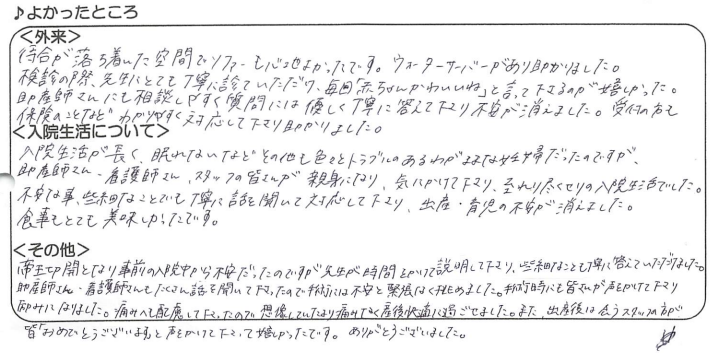 ♪よかったところ
<外来>
待合が落ち着いた空間でソファーも心地よかったです。ウォーターサーバーがあり助かりました。
検診の際、先生にとても丁寧に診ていただけ、毎回「赤ちゃんかわいいね」と言って下さるのが嬉しかった。
助産師さんにも相談しやすく質問には優しく丁寧に答えて下さり不安が消えました。受付の方も
保険のことなどわかりやすく対応して下さり助かりました。
<入院生活について>
入院生活が長く、眠れないなどその他も色々とトラブルのあるわがままな妊婦だったのですが、
助産師さん・看護師さん、スタッフの皆さんが親身になり、気にかけて下さり、至れり尽くせりの入院生活でした。
不安な事、些細なことでも丁寧に話を聞いて対応して下さり、出産・育児の不安が消えました。
食事もとても美味しかったです。
<その他>
帝王切開となり事前の入院中から不安だったのですが先生が時間をかけて説明して下さり、些細なことも丁寧に答えていただけました。
助産師さん・看護師さんもたくさん話を聞いて下さったので手術には不安と緊張なく挑めました。手術時にも皆さんが声をかけて下さり
励みになりました。痛みへも配慮して下さったので想像していたより痛みなく産後快適に過ごせました。また、出産後は会うスタッフの方が
皆「おめでとうございます」と声をかけて下さって嬉しかったです。ありがとうございました。